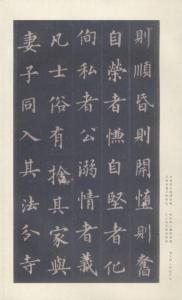 則順昏則開則奮
自榮者慊自堅者化
徇私者公溺情者義
凡士俗有捨其家與
妻子同入其法分寺